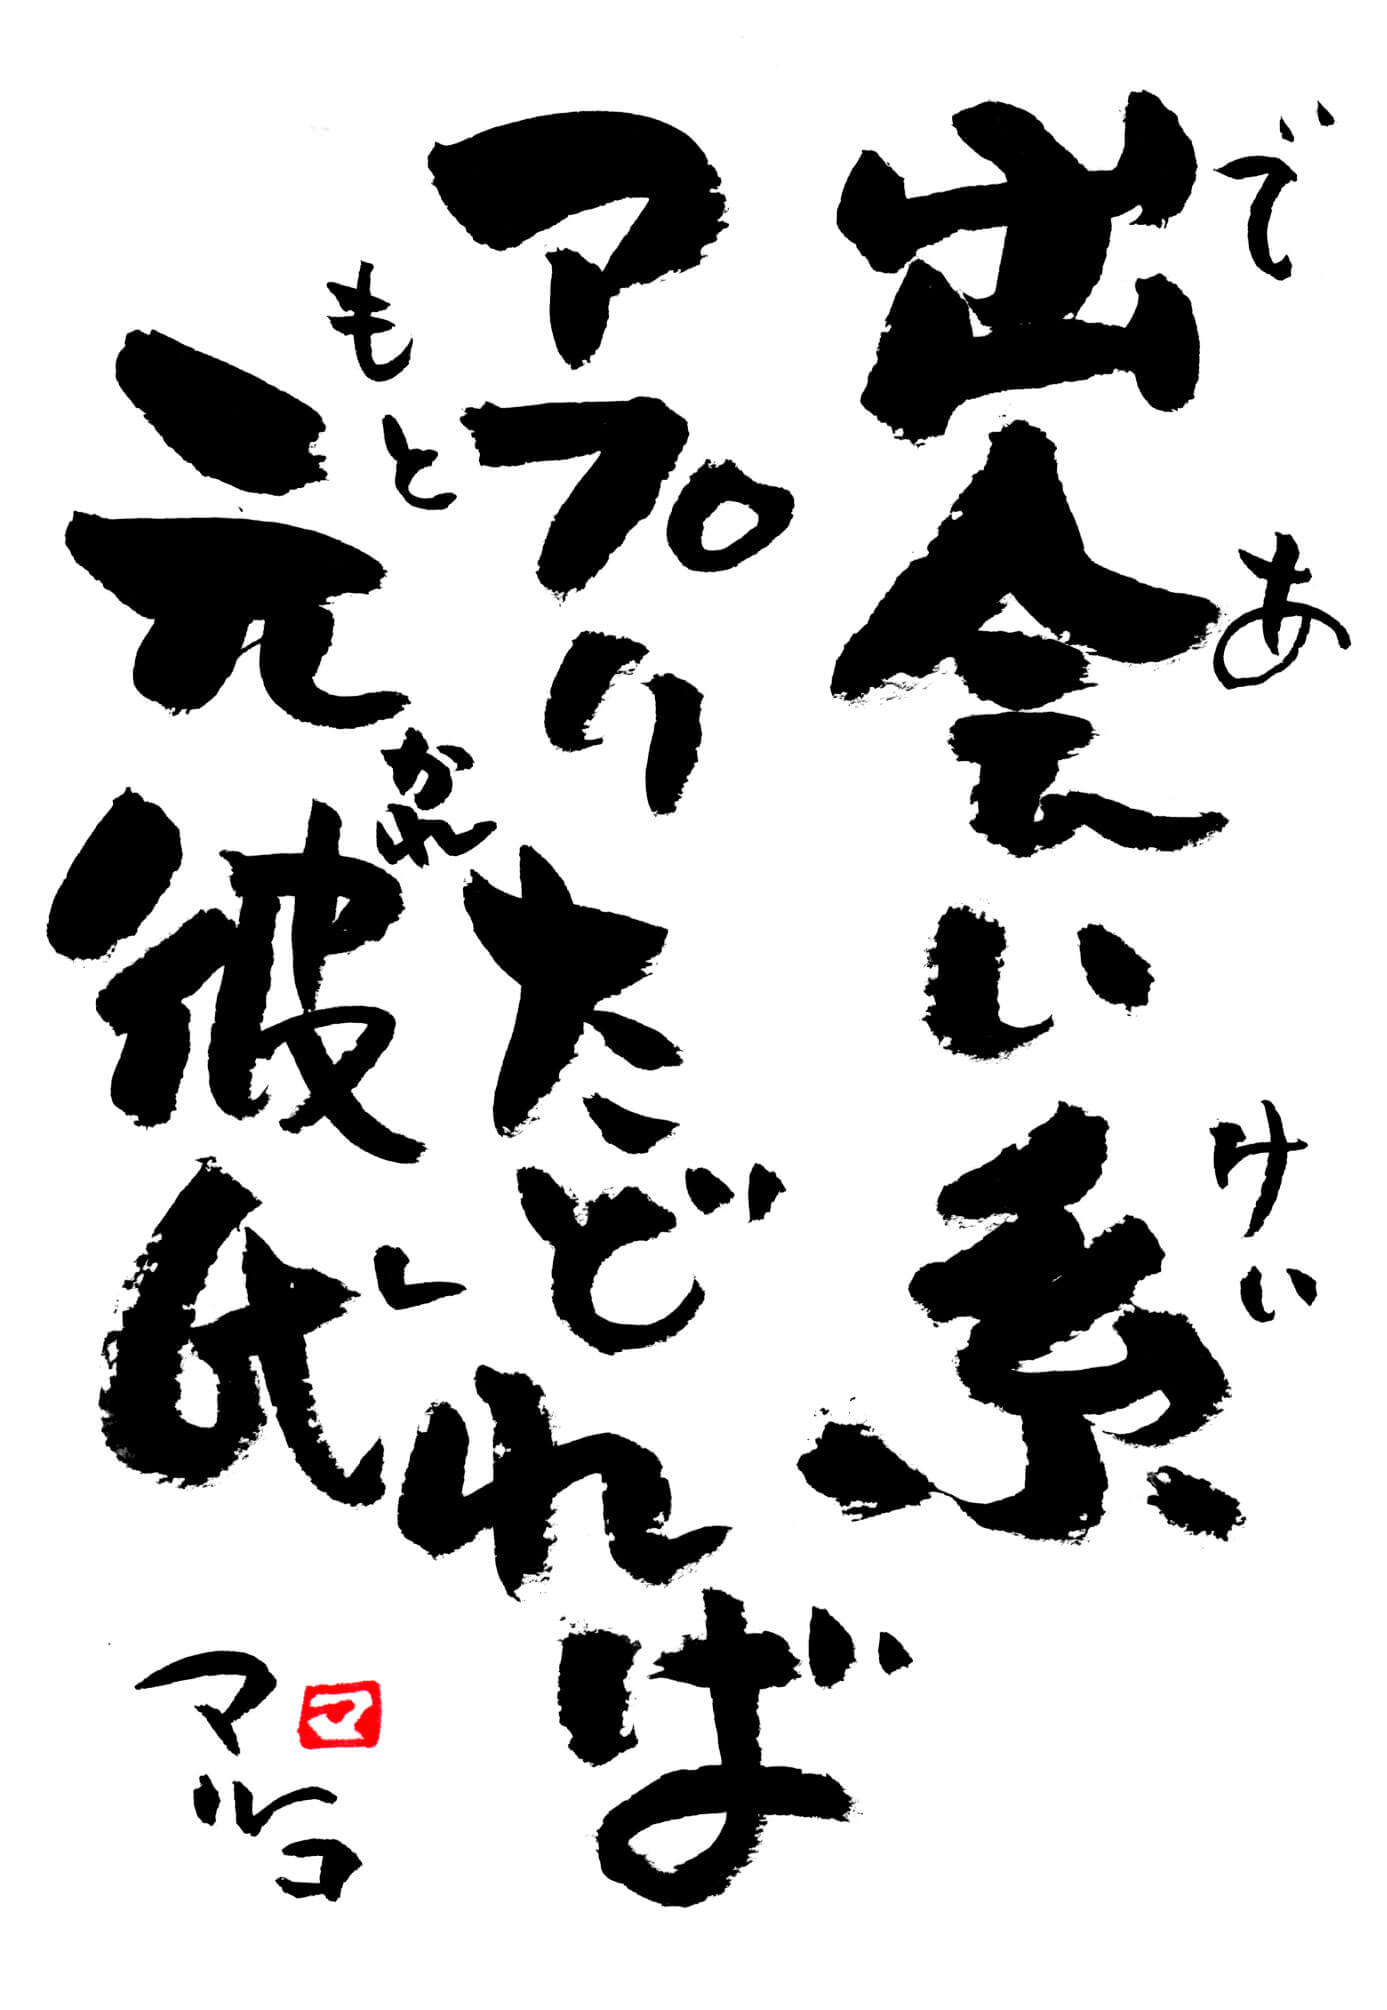 出会い系
で あ けい
アプリたどれば
元彼氏
もと かれ し
マルコ
マ